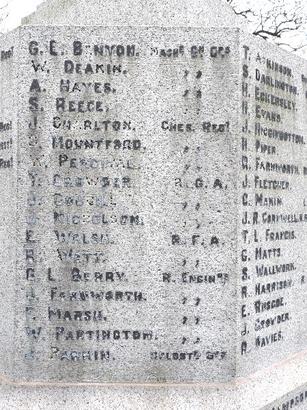 G. L. BENYON. MACHN GN CPS
W. DEAKIN. ,,
A. HAYES. ,,
S. REECE. ,,
J. CHARLTON. CHES. REGT
J. MOUNTFORD. ,,
W. PERCIVAL. ,,
T. CROWDER. R.G.A.
J. ,,
J. NICHOLSON. ,,
E. WALSH. R.F.A.
R. WATT. ,,
G. L. BERRY. R. ENGINRS
J. FARNWORTH. ,,
F. MARSH. ,,
W. PARTINGTON. ,,
PARKIN.
T. ATKINSON.
S. DARLINGTON.
H. ECKERSLEY
H. EVANS.
J. HIGGINBOTTOM.
H. PIPER.
R. FARNWORTH.
J. FLETCHER.
C. MAKIN.
J. R. CORNWELL.
T. L. FRANCIS.
G. MATTS
S. WALLWORK.
R. HARRISON.
E. RUSCOE.
J. CROWDER.
R. DAVIES.